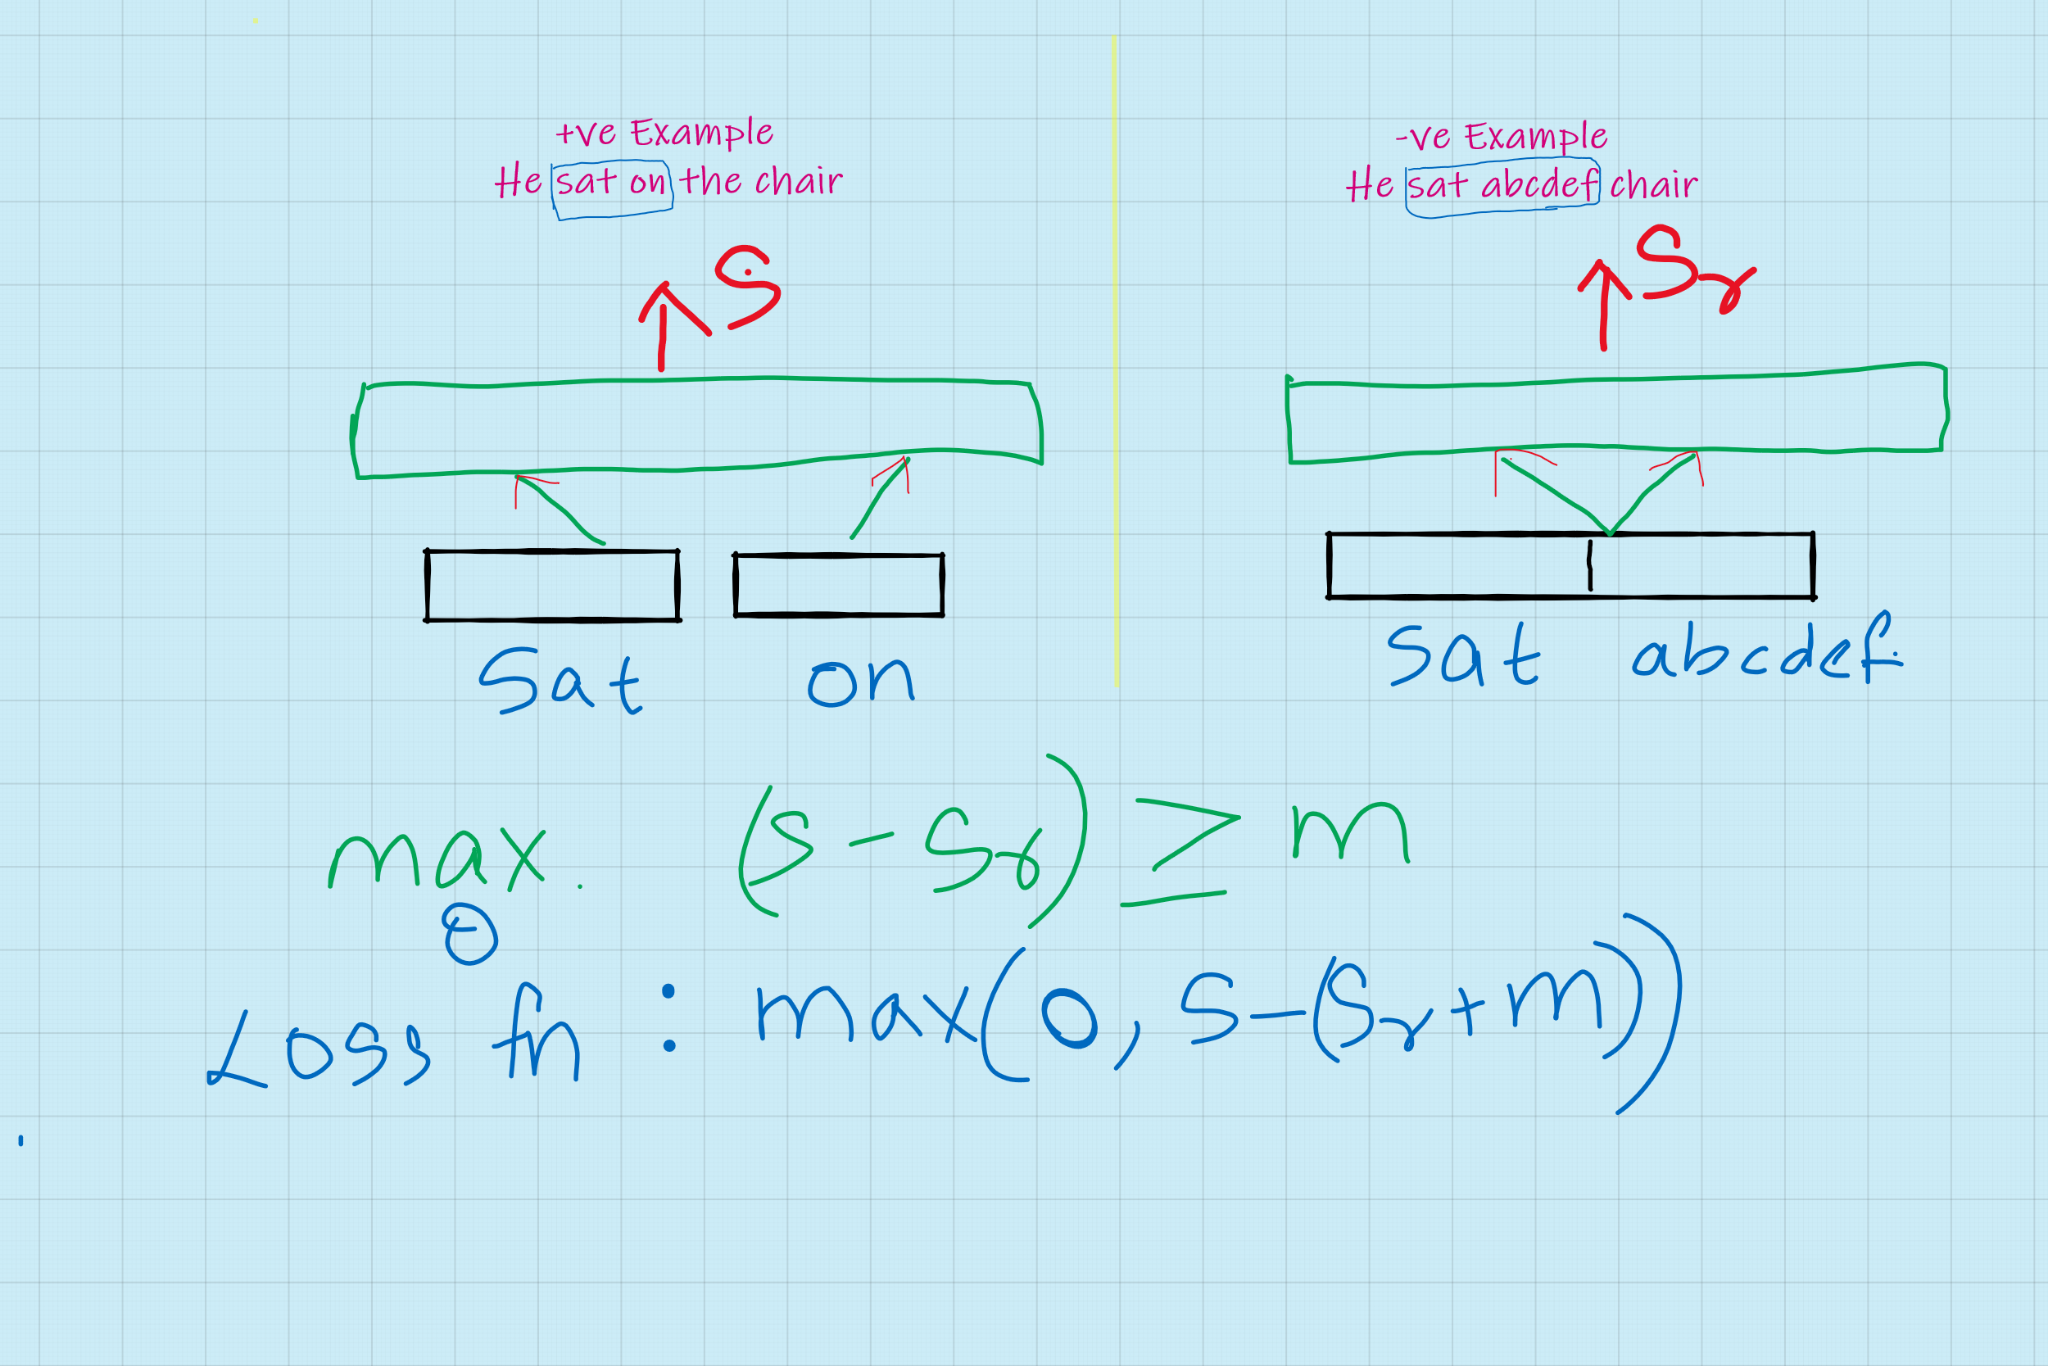 +ve Example
He sat on the chair
S
Sat on
-ve Example
He sat abcdef chair
Sr
Sat abcdef
max. (S - Sr) ≥ m
θ
Loss fn : max(0, S-(Sr+m))